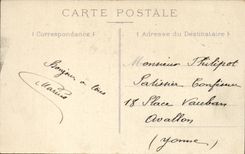 CARTE POSTALE
Correspondance
Adresse du Destinataire
Bonjour à tous
Marius
Monsieur Philipot
Patissier Confiseur
18 Place Vauban
Avallon
(Yonne)